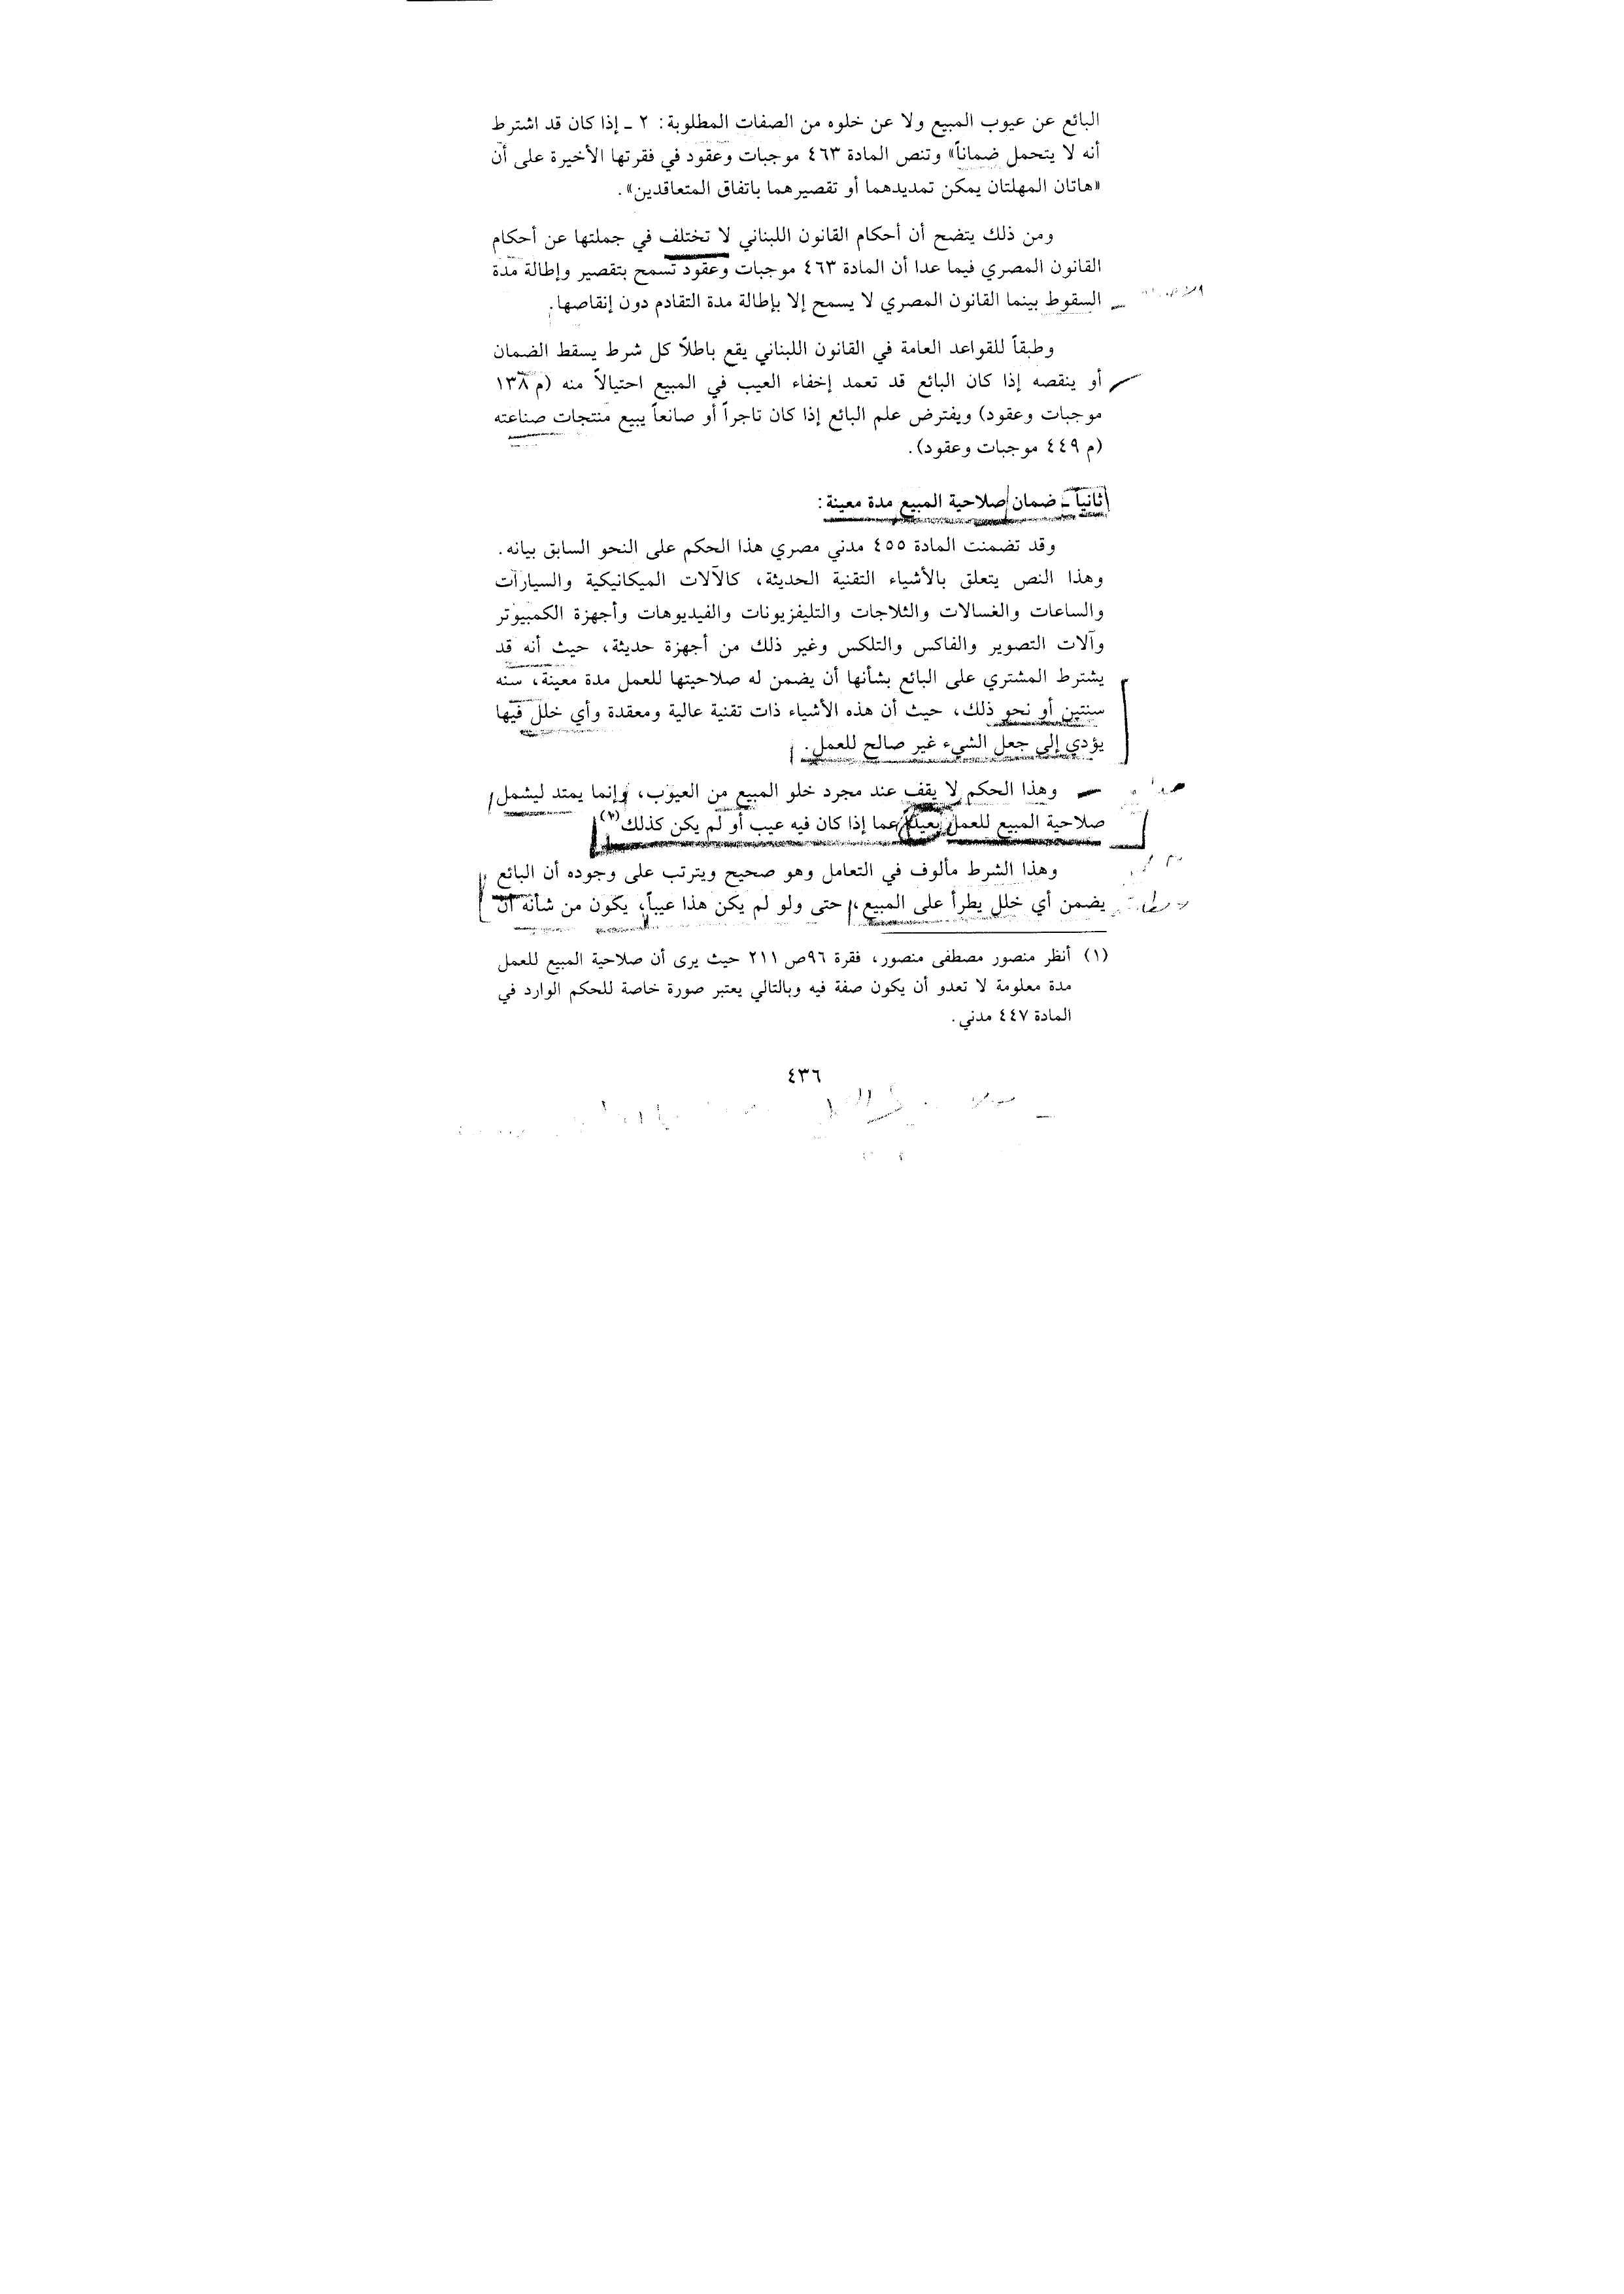 البائع عن عيوب المبيع ولا عن خلوه من الصفات المطلوبة: ٢ ـ إذا كان قد اشترط
أنه لا يتحمل ضماناً» وتنص المادة ٤٦٣ موجبات وعقود في فقرتها الأخيرة على أن
«هاتان المهلتان يمكن تمديدهما أو تقصيرهما باتفاق المتعاقدين».
ومن ذلك يتضح أن أحكام القانون اللبناني لا تختلف في جملتها عن أحكام
القانون المصري فيما عدا أن المادة ٤٦٣ موجبات وعقود تسمح بتقصير وإطالة مدة
السقوط بينما القانون المصري لا يسمح إلا بإطالة مدة التقادم دون إنقاصها.
وطبقاً للقواعد العامة في القانون اللبناني يقع باطلاً كل شرط يسقط الضمان
أو ينقصه إذا كان البائع قد تعمد إخفاء العيب في المبيع احتيالاً منه (م ١٣٨
موجبات وعقود) ويفترض علم البائع إذا كان تاجراً أو صانعاً يبيع منتجات صناعته
(م ٤٤٩ موجبات وعقود).
ثانياً ـ ضمان صلاحية المبيع مدة معينة:
وقد تضمنت المادة ٤٥٥ مدني مصري هذا الحكم على النحو السابق بيانه.
وهذا النص يتعلق بالأشياء التقنية الحديثة، كالآلات الميكانيكية والسيارات
والساعات والغسالات والثلاجات والتليفزيونات والفيديوهات وأجهزة الكمبيوتر
وآلات التصوير والفاكس والتلكس وغير ذلك من أجهزة حديثة، حيث أنه قد
يشترط المشتري على البائع بشأنها أن يضمن له صلاحيتها للعمل مدة معينة، سنه
سنتين أو نحو ذلك، حيث أن هذه الأشياء ذات تقنية عالية ومعقدة وأي خلل فيها
يؤدي إلى جعل الشيء غير صالح للعمل.
وهذا الحكم لا يقف عند مجرد خلو المبيع من العيوب، وإنما يمتد ليشمل
صلاحية المبيع للعمل بعيداً عما إذا كان فيه عيب أو لم يكن كذلك(١)
وهذا الشرط مألوف في التعامل وهو صحيح ويترتب على وجوده أن البائع
يضمن أي خلل يطرأ على المبيع، حتى ولو لم يكن هذا عيباً، يكون من شأنه أن
(١) أنظر منصور مصطفى منصور، فقرة ٩٦ص ٢١١ حيث يرى أن صلاحية المبيع للعمل
مدة معلومة لا تعدو أن يكون صفة فيه وبالتالي يعتبر صورة خاصة للحكم الوارد في
المادة ٤٤٧ مدني.
٤٣٦